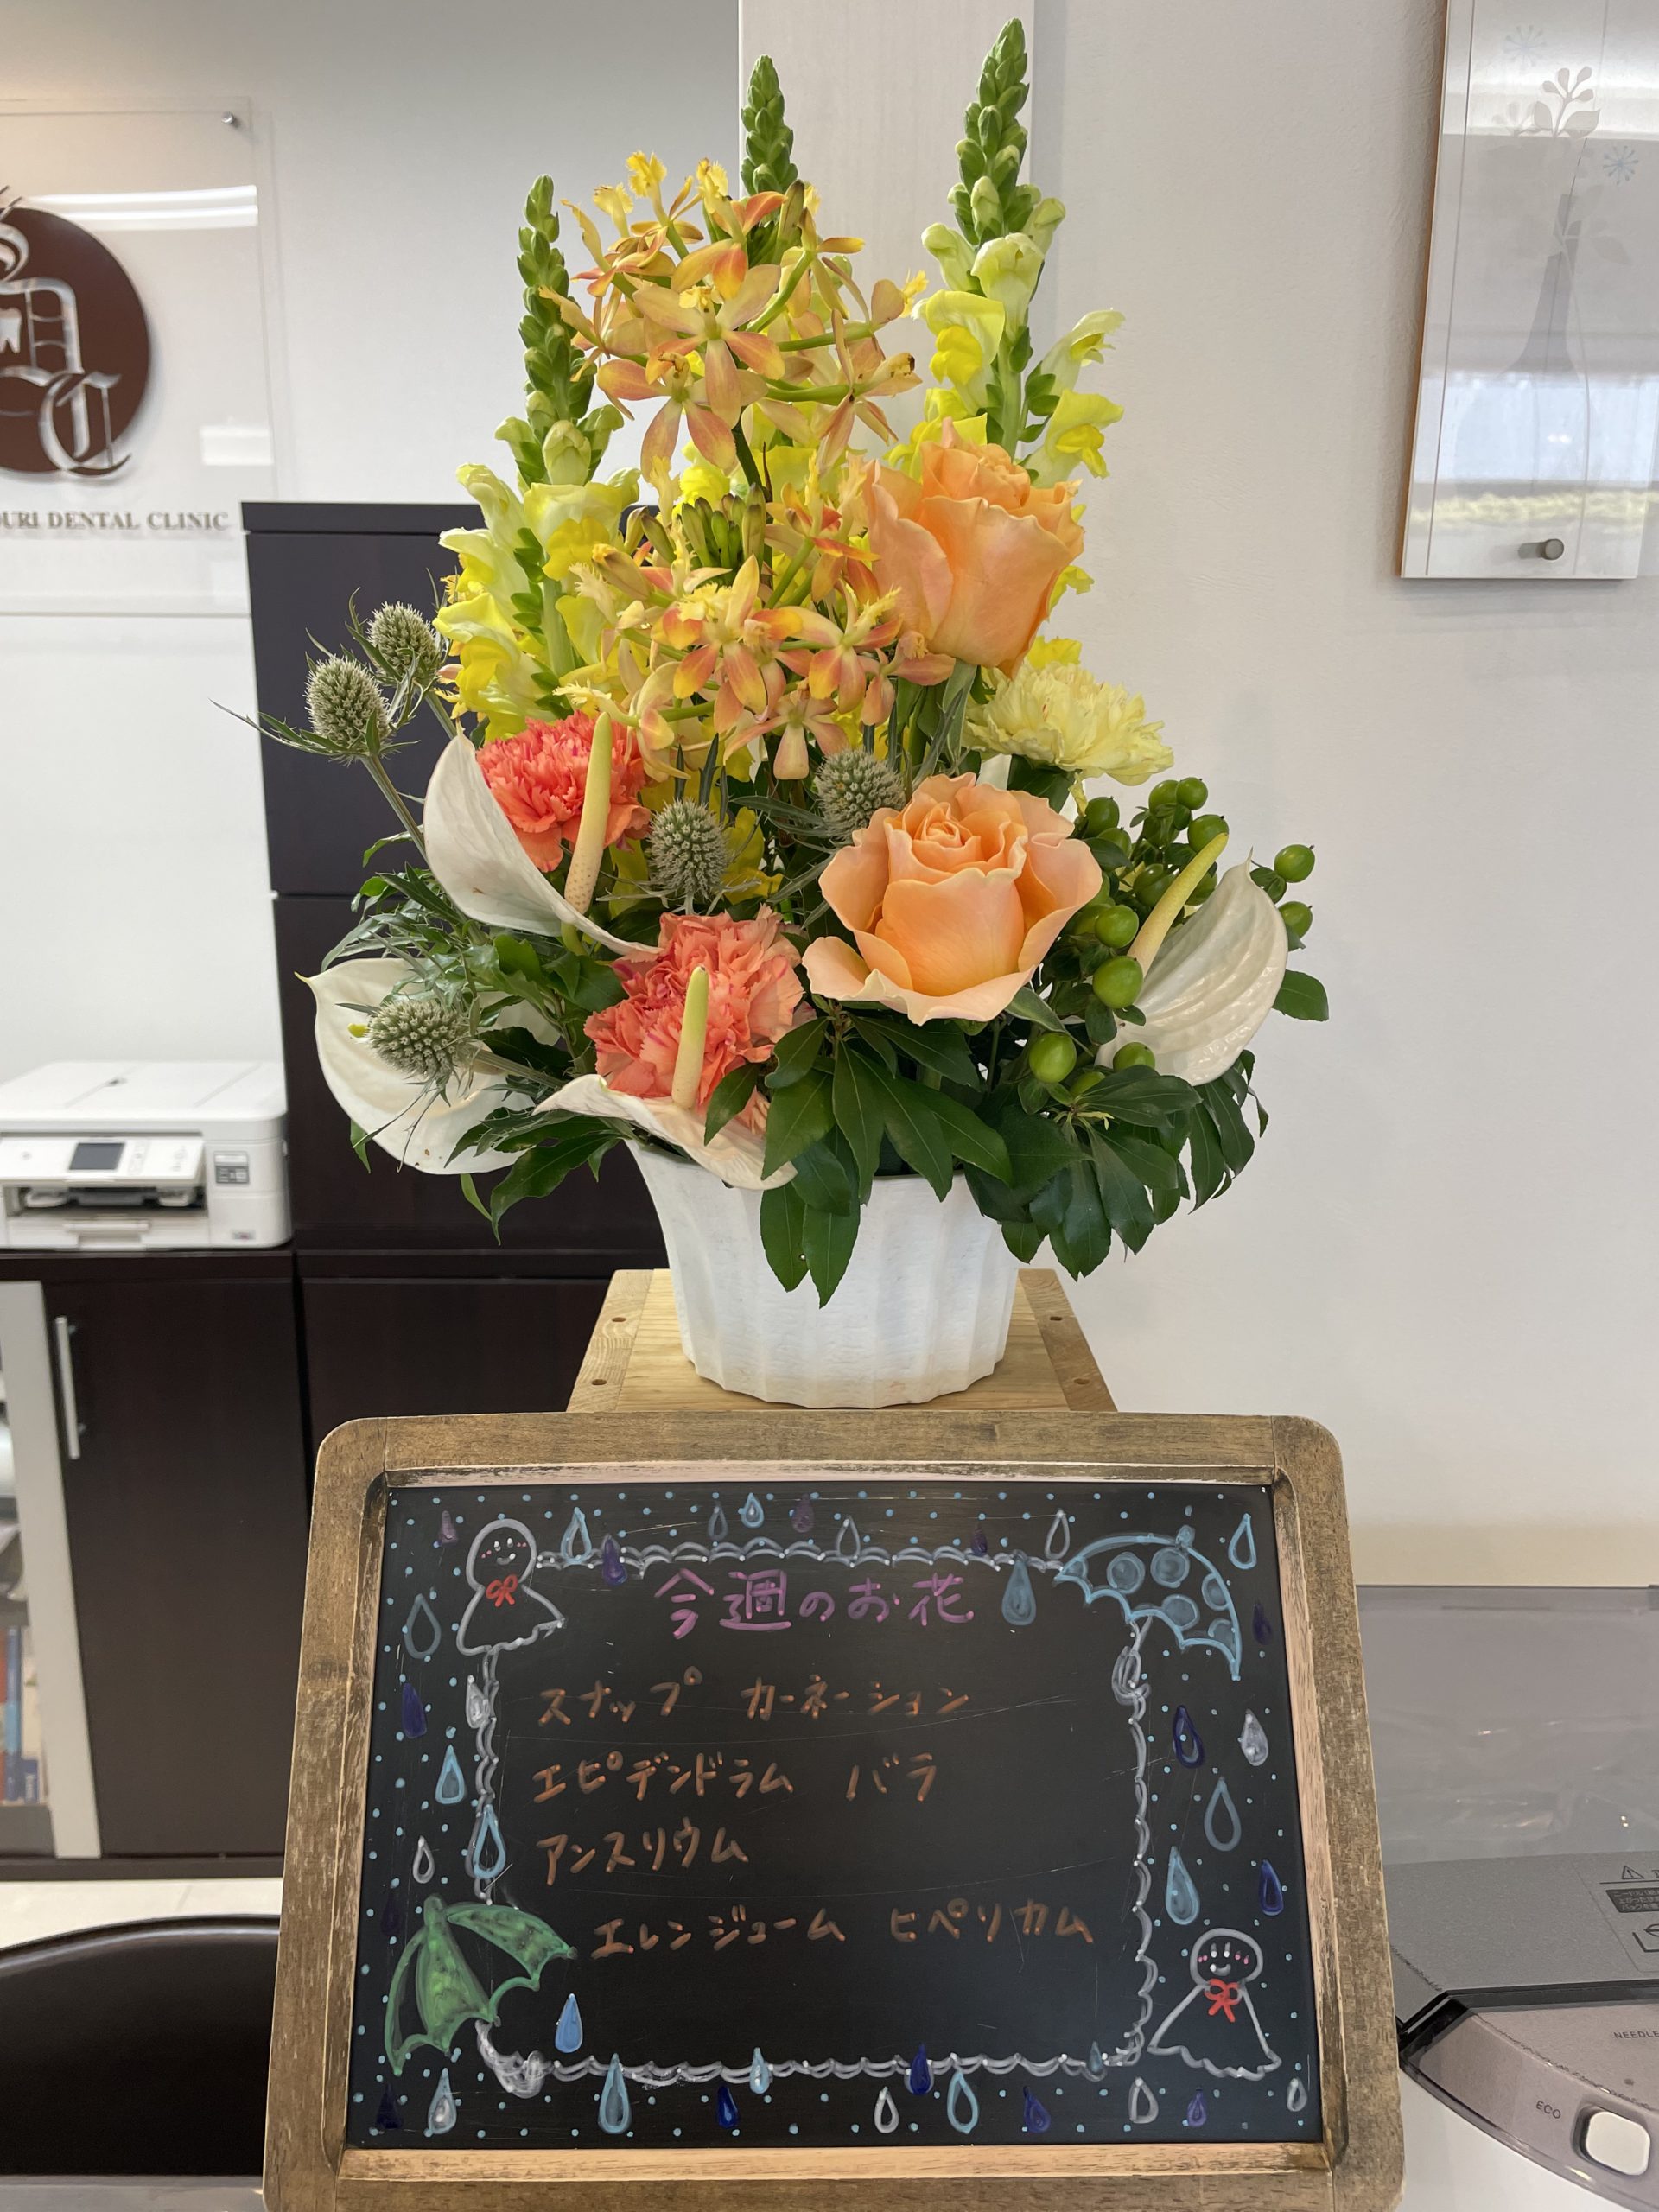 OURI DENTAL CLINIC
今週のお花
スナップ カーネーション
エピデンドラム バラ
アンスリウム
エレンジューム ヒペリカム
NEEDLE
ECO